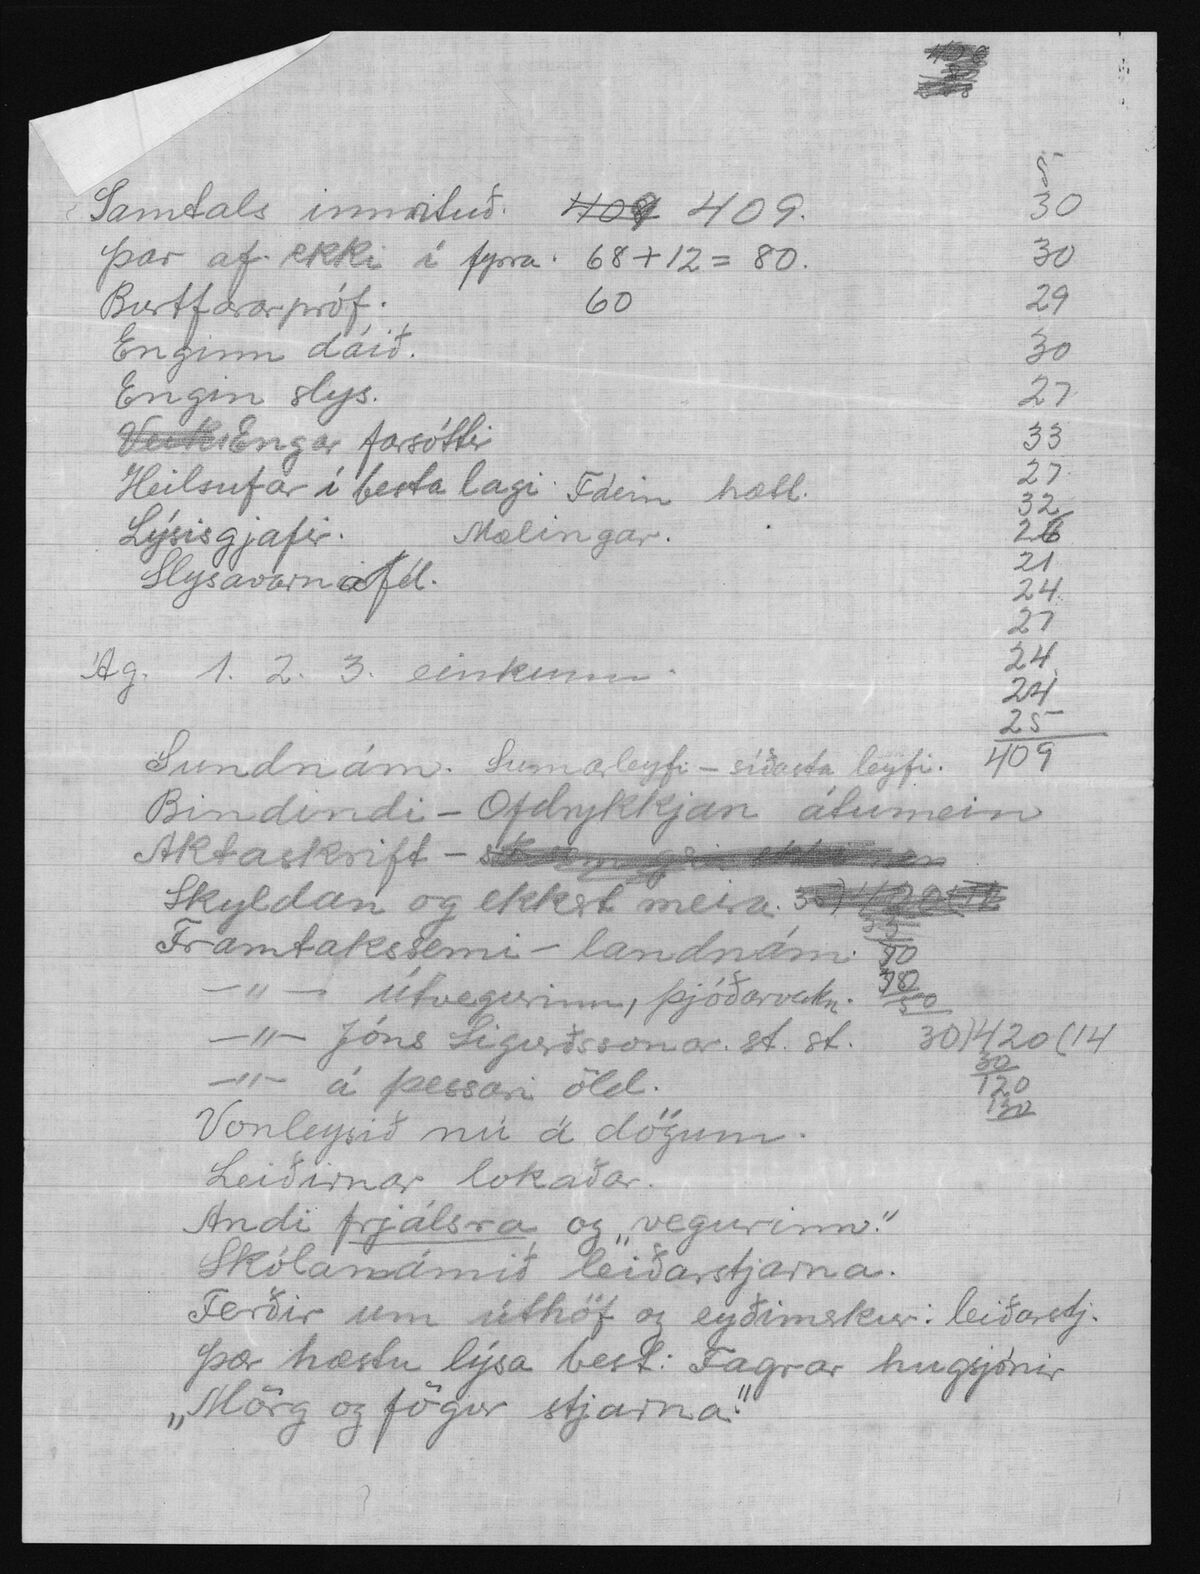 5
Samtals innrituð. 409. 30
þar af ekki í fyrra. 68+12=80. 30
Burtfararpróf. 60 29
Enginn dáið. 30
Engin slys. 27
Engar farsóttir 33
Heilsufar í besta lagi. Fáein hætt. 27
32
Lýsisgjafir. Mælingar. 26
Slysavarnafél. 21
24
27
Ág. 1. 2. 3. einkunn. 24
24
25
Sundnám. Sumarleyfi – síðasta leyfi. 409
Bindindi – Ofdrykkjan átumein
Aktaskrift –
Skyldan og ekkert meira.
Framtakssemi – landnám. 90
–"– útvegurinn, þjóðarvakn.
–"– Jóns Sigurðssonar. st. st. 30)420(14
30
–"– á þessari öld. 120
120
Vonleysið nú á dögum.
Leiðirnar lokaðar.
Andi frjálsra og „vegurinn".
Skólanámið leiðarstjarna.
Ferðir um úthöf og eyðimerkur: leiðarstj.
Þær hæstu lýsa best: Fagrar hugsjónir
„Mörg og fögur stjarna."